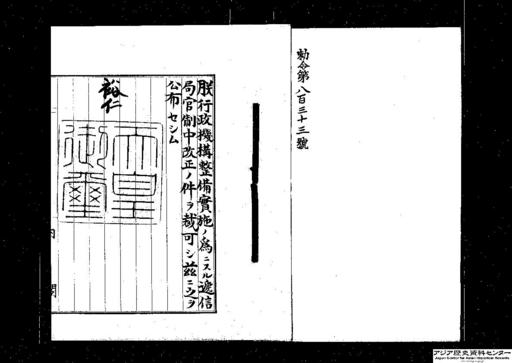 勅令第八百三十三號
朕行政機構整備實施ノ爲ニスル遞信
局官制中改正ノ件ヲ裁可シ茲ニ之ヲ
公布セシム
裕仁
天皇
御璽
内閣
アジア歴史資料センター
Japan Center for Asian Historical Records